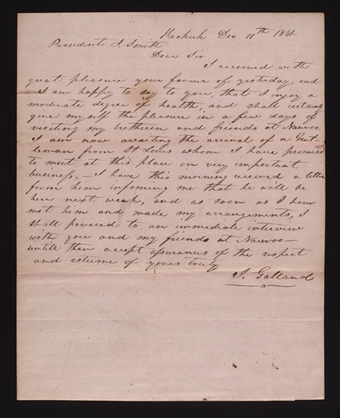 Keokuk Dec 11th 1841
President J. Smith
Dear Sir
I received with
great pleasure your favour of yestaday, and
I am happy to say to you, that I injoy a
moderate degree of health, and shall certainly
give my self the pleasure in a few days of
visiting my bretheren and friends at Nauvoo.
I am now awaiting the arrival of a Gent
leman from St Louis whom I have promised
to meet at this place on very important
business,—I have this morning received a letter
from him informing me that he will be
here next weak, and as soon as I have
met him and made my arrangements, I
shall proceed to an immediate interview
with you and my friends at Nauvoo—
untill then accept assurances of the respect
and esteeme of yours truly
I. Galland